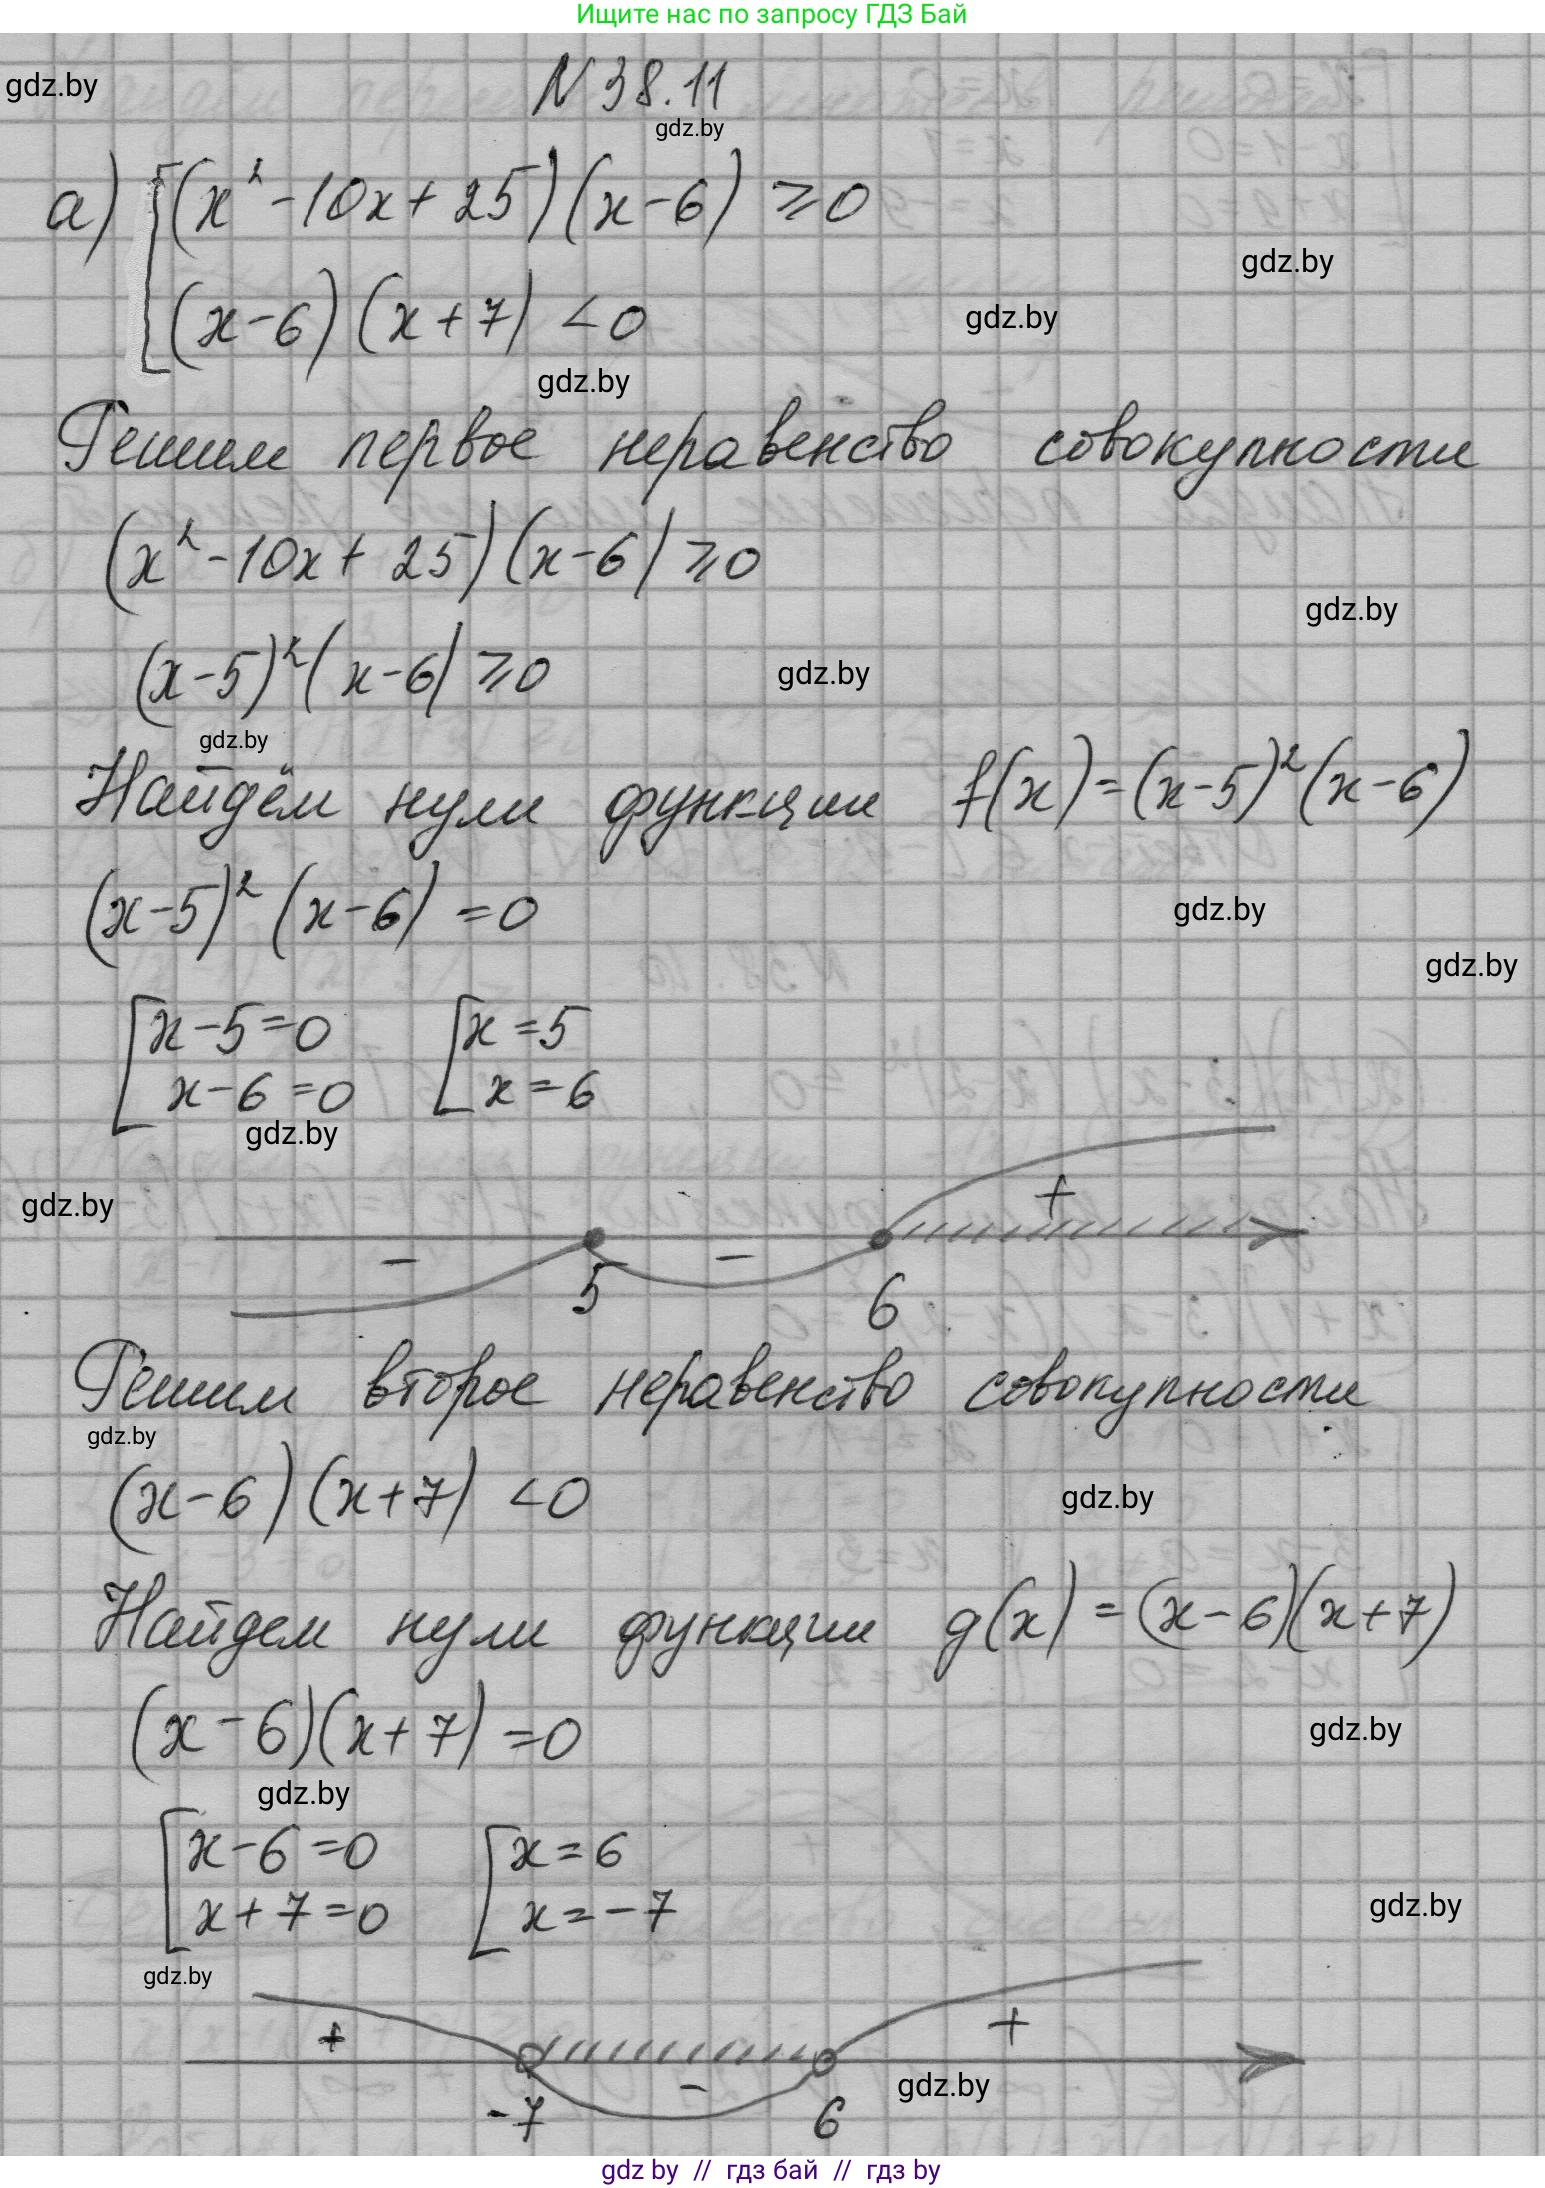 Ищите нас по запросу ГДЗ Бай
gdz.by
N 38.11
gdz.by
а) [(x²-10x+25)(x-6) ⩾0
gdz.by
(x-6)(x+7) <0
gdz.by
gdz.by
Решим первое неравенство совокупности
(x²-10x+25)(x-6)⩾0
gdz.by
(x-5)²(x-6)⩾0
gdz.by
gdz.by
Найдём нули функции f(x)=(x-5)²(x-6)
(x-5)²(x-6)=0
gdz.by
gdz.by
[x-5=0 [x=5
x-6=0 x=6
gdz.by
gdz.by
+
- 5 - 6
Решим второе неравенство совокупности
gdz.by
(x-6)(x+7) <0
gdz.by
Найдем нули функции g(x)=(x-6)(x+7)
(x-6)(x+7)=0
gdz.by
gdz.by
[x-6=0 [x=6
x+7=0 x=-7
gdz.by
gdz.by
+ - +
gdz.by
-7 6
gdz by // гдз бай // гдз by